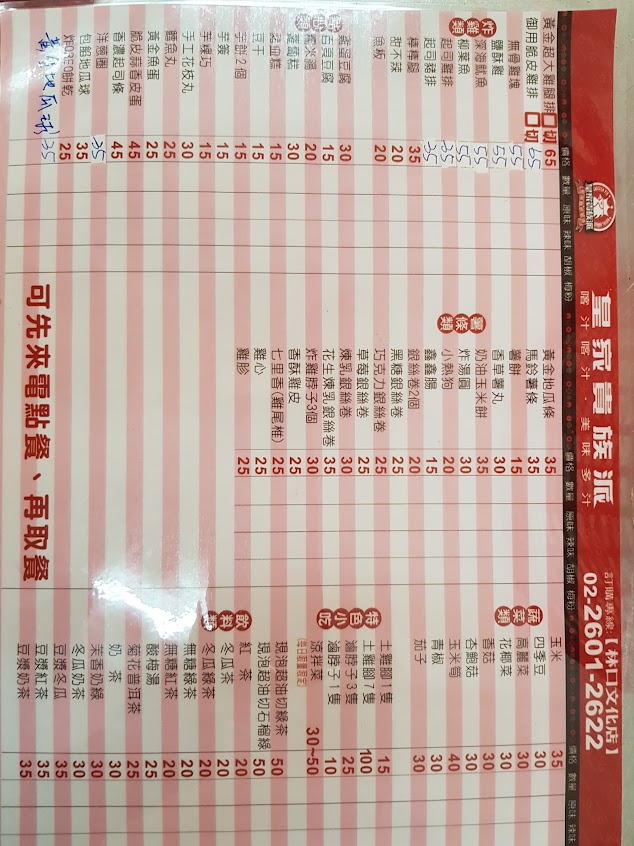 皇家貴族派
喀汁喀汁．美味多汁
訂購專線：【林口文化店】
02-2601-2622
價格 數量 原味 辣味 胡椒 梅粉
黃金超大雞腿排 切 65
御用脆皮雞排 切 65
炸雞類
無骨雞塊 55
鹽酥雞 55
深海魷魚 55
柳葉魚 55
起司雞排
起司豬排 35
棒棒腿 35
甜不辣 20
魚板 20
雞蛋豆腐 30
百頁豆腐 15
20
蘿蔔糕 30
米血糕 15
豆干 15
2個 15
芋簽 15
芋粿巧 15
手工花枝丸 30
鱈魚丸 25
黃金魚蛋 25
脆皮蒜香皮蛋 45
香濃起司條 45
洋蔥圈 35
包餡地瓜球 35
炸OREO餅乾 25
黃金地瓜球 35
價格 數量 原味 辣味 胡椒 梅粉
黃金地瓜條 35
馬鈴薯條 35
薯條類
薯餅 15
香草薯丸 30
奶油玉米餅 35
炸湯圓 30
小熱狗 20
鑫鑫腸 15
銀絲卷2個 20
黑糖銀絲卷 25
巧克力銀絲卷 25
草莓銀絲卷 25
煉乳銀絲卷 30
花生煉乳銀絲卷 35
炸雞脖子3個 30
香酥雞皮 25
七里香(雞尾椎) 25
雞心 25
雞胗 25
價格 數量 原味 辣味
玉米 35
蔬菜類
四季豆 30
高麗菜 30
花椰菜 30
香菇 30
杏鮑菇 30
玉米筍 40
青椒 30
茄子 30
特色小吃
土雞腳1隻 15
土雞腳7隻 100
滷脖子3隻 25
滷脖子1隻 10
涼拌菜 30~50
(每日限量限定)
現泡超油切綠茶 50
現泡超油切石榴綠 50
飲料類
紅茶 20
冬瓜茶 20
冬瓜綠茶 20
無糖綠茶 20
無糖紅茶 20
酸梅湯 25
菊花普洱茶 25
奶茶 30
茉香奶綠 30
冬瓜奶茶 30
豆漿冬瓜 35
豆漿紅茶 35
豆漿奶茶 35
可先來電點餐、再取餐